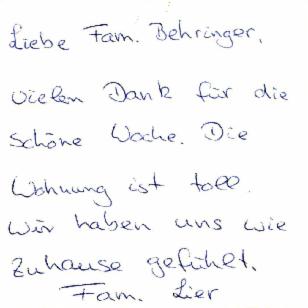 Liebe Fam. Behringer,
vielen Dank für die
schöne Woche. Die
Wohnung ist toll.
Wir haben uns wie
Zuhause gefühlt.
Fam. Lier